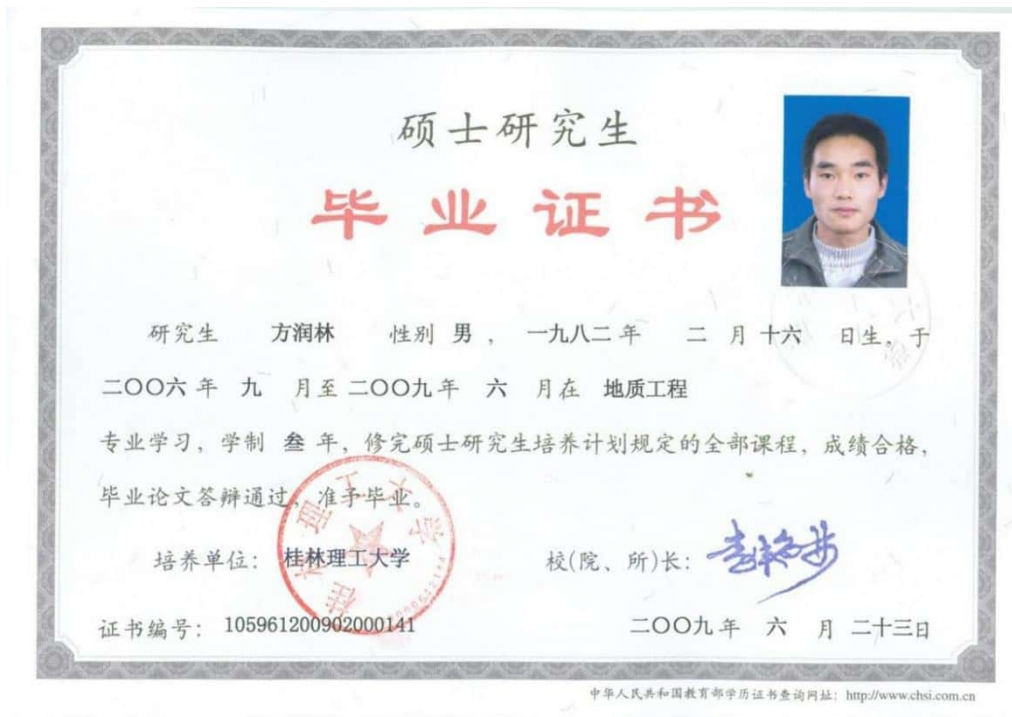 硕士研究生
毕业证书
研究生 方润林 性别 男 , 一九八二 年 二 月 十六 日生, 于
二〇〇六 年 九 月至 二〇〇九 年 六 月在 地质工程
专业学习, 学制 叁 年, 修完硕士研究生培养计划规定的全部课程, 成绩合格,
毕业论文答辩通过, 准予毕业。
桂林理工大学
培养单位: 桂林理工大学 校(院、所)长:
证书编号: 105961200902000141 二〇〇九 年 六 月 二十三日
中华人民共和国教育部学历证书查询网址: http://www.chsi.com.cn